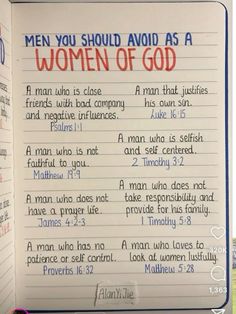 MEN YOU SHOULD AVOID AS A
WOMEN OF GOD
A man who is close
friends with bad company
and negative influences.
Psalms 1:1
A man that justifies
his own sin.
Luke 16:15
A man who is not
faithful to you.
Matthew 19:9
A man who is selfish
and self centered.
2 Timothy 3:2
A man who does not
have a prayer life.
James 4:2-3
A man who does not
take responsibility and
provide for his family.
1 Timothy 5:8
A man who has no
patience or self control.
Proverbs 16:32
A man who loves to
look at women lustfully.
Matthew 5:28
AlanYiJie
320K
1,363